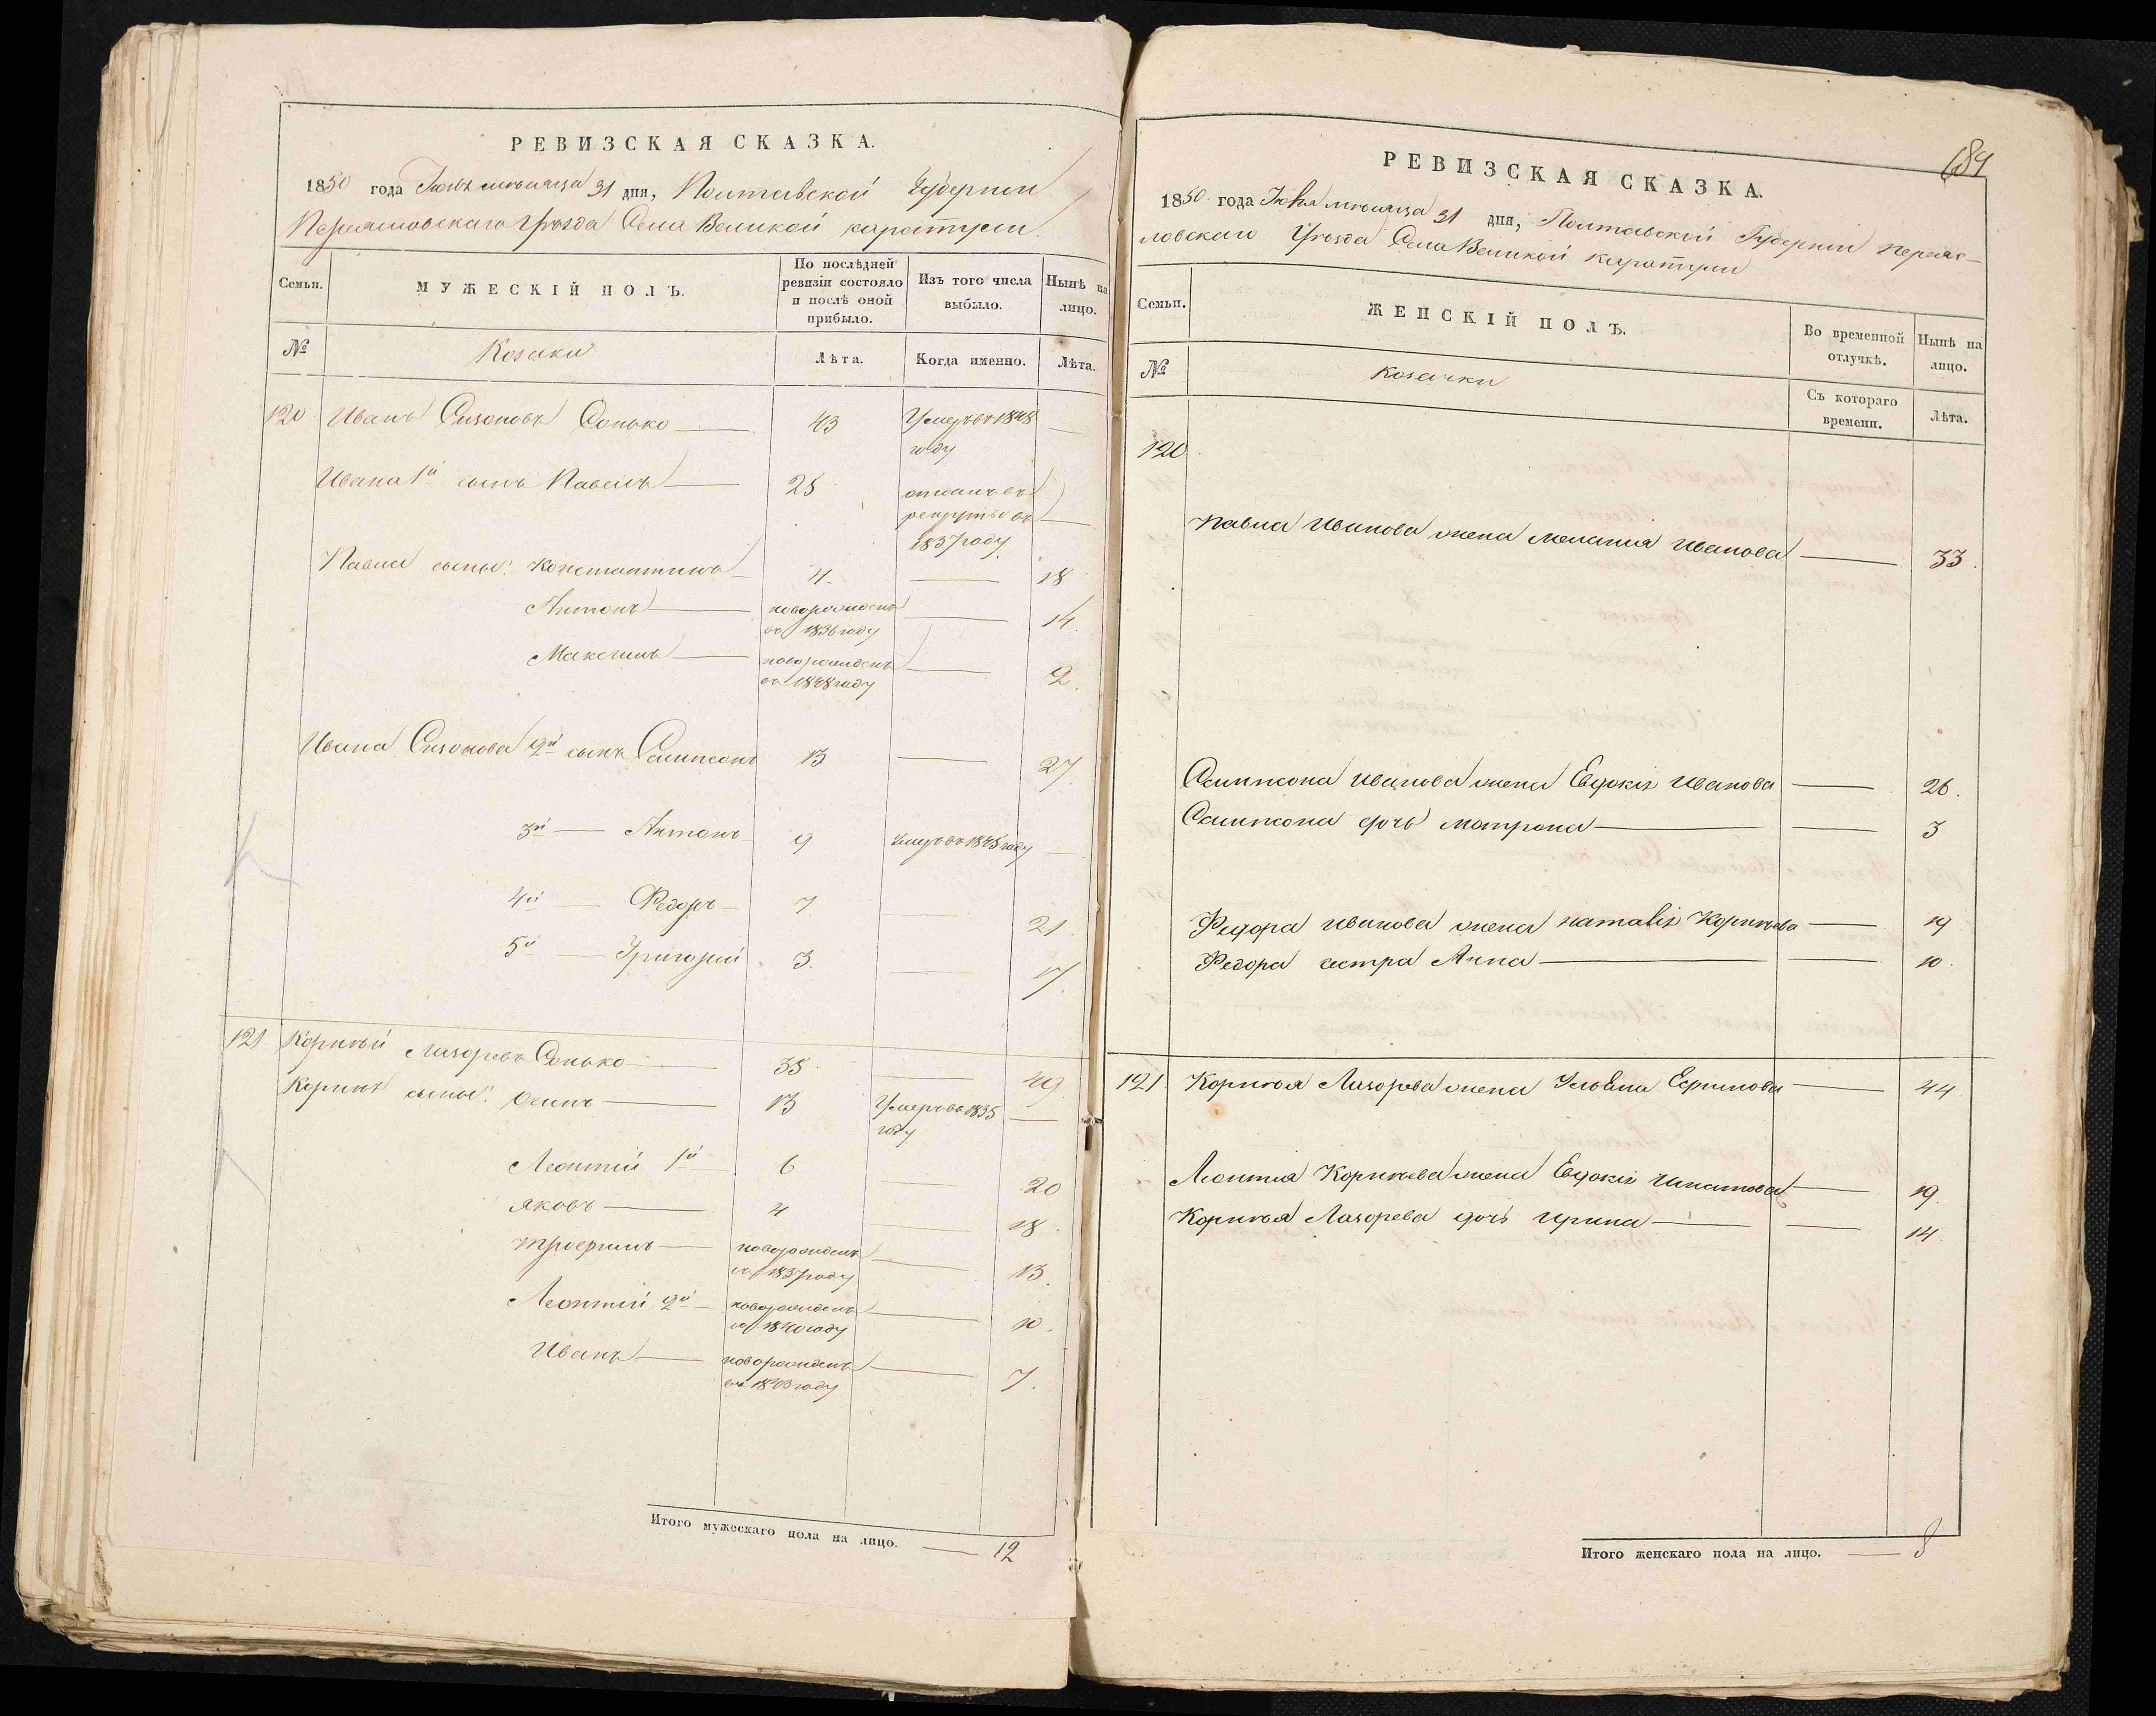 РЕВИЗСКАЯ СКАЗКА.
1850 года Іюля мѣсяца 31 дня, Полтавской Губерніи
Переяславскаго Уѣзда Села Великой каратули.
Семьи. МУЖЕСКІЙ ПОЛЪ. По послѣдней ревизіи состояло и послѣ оной прибыло. Изъ того числа выбыло. Нынѣ на лицо.
№ Козаки Лѣта. Когда именно. Лѣта.
120 Иванъ Сизоновъ Сонько — 43 Умеръ въ 1848 году —
Ивана 1й сынъ Павелъ — 25 отданъ въ рекруты въ 1837 году —
Павла сыны: Константинъ — 4 — 18
Антонъ — новорожденъ въ 1836 году — 14.
Максимъ — новорожденъ въ 1848 году — 2.
Ивана Сизонова 2й сынъ Сампсонъ 13 — 27
3й — Антонъ 9 Умеръ въ 1845 году —
4й — Федоръ — 7 — 21
5й — Григорій 3. — 17.
121 Корнѣй Лазоревъ Сонько — 35 — 49
Корнѣя сыны: Осипъ — 13 Умеръ въ 1835 году —
Леонтій 1й 6 — 20
Яковъ — 4 — 18.
Трофимъ — новорожденъ въ 1837 году — 13.
Леонтій 2й — новорожденъ въ 1840 году — 10.
Иванъ — новорожденъ въ 1843 году — 7.
Итого мужескаго пола на лицо. — 12
684
РЕВИЗСКАЯ СКАЗКА.
1850 года Іюля мѣсяца 31 дня, Полтавской Губерніи Переяс-
ловскаго Уѣзда Села Великой каратули
Семьи. ЖЕНСКІЙ ПОЛЪ. Во временной отлучкѣ. Нынѣ на лицо.
№ Козачки Съ котораго времени. Лѣта.
120
Павла Иванова жена Меланія Иванова — 33.
Сампсона Иванова жена Евдокія Иванова — 26.
Сампсона дочь Матрона — — 3
Федора Иванова жена Наталія Корнѣева — 19
Федора сестра Анна — — 10.
121. Корнѣя Лазорева жена Ульяна Ефимова — 44
Леонтія Корнѣева жена Евдокія — 19.
Корнѣя Лазорева дочь Ирина — — 14.
Итого женскаго пола на лицо. — 8